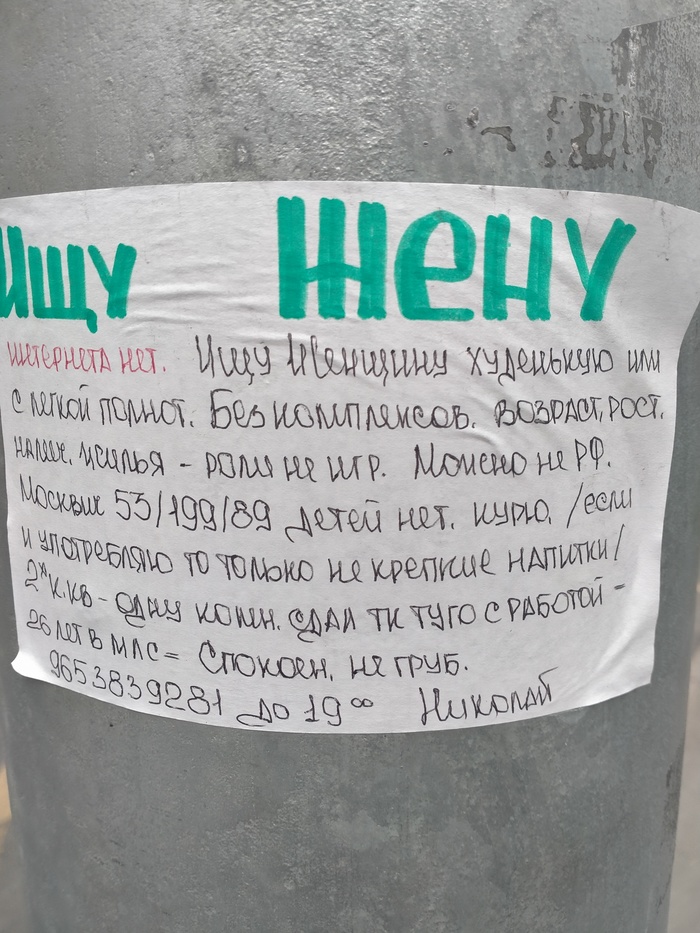 Ищу Жену
интернета нет. Ищу Женщину худенькую или
с легкой полнот. Без комплексов. возраст, рост.
налич. жилья - роли не игр. Можно не РФ.
Москвич 53/199/89 детей нет. курю, /если
и употребляю то только не крепкие напитки/
2х к.кв - одну комн. сдал тк туго с работой -
26 лет в МЛС = Спокоен, не груб.
9653839281 до 19 00 Николай